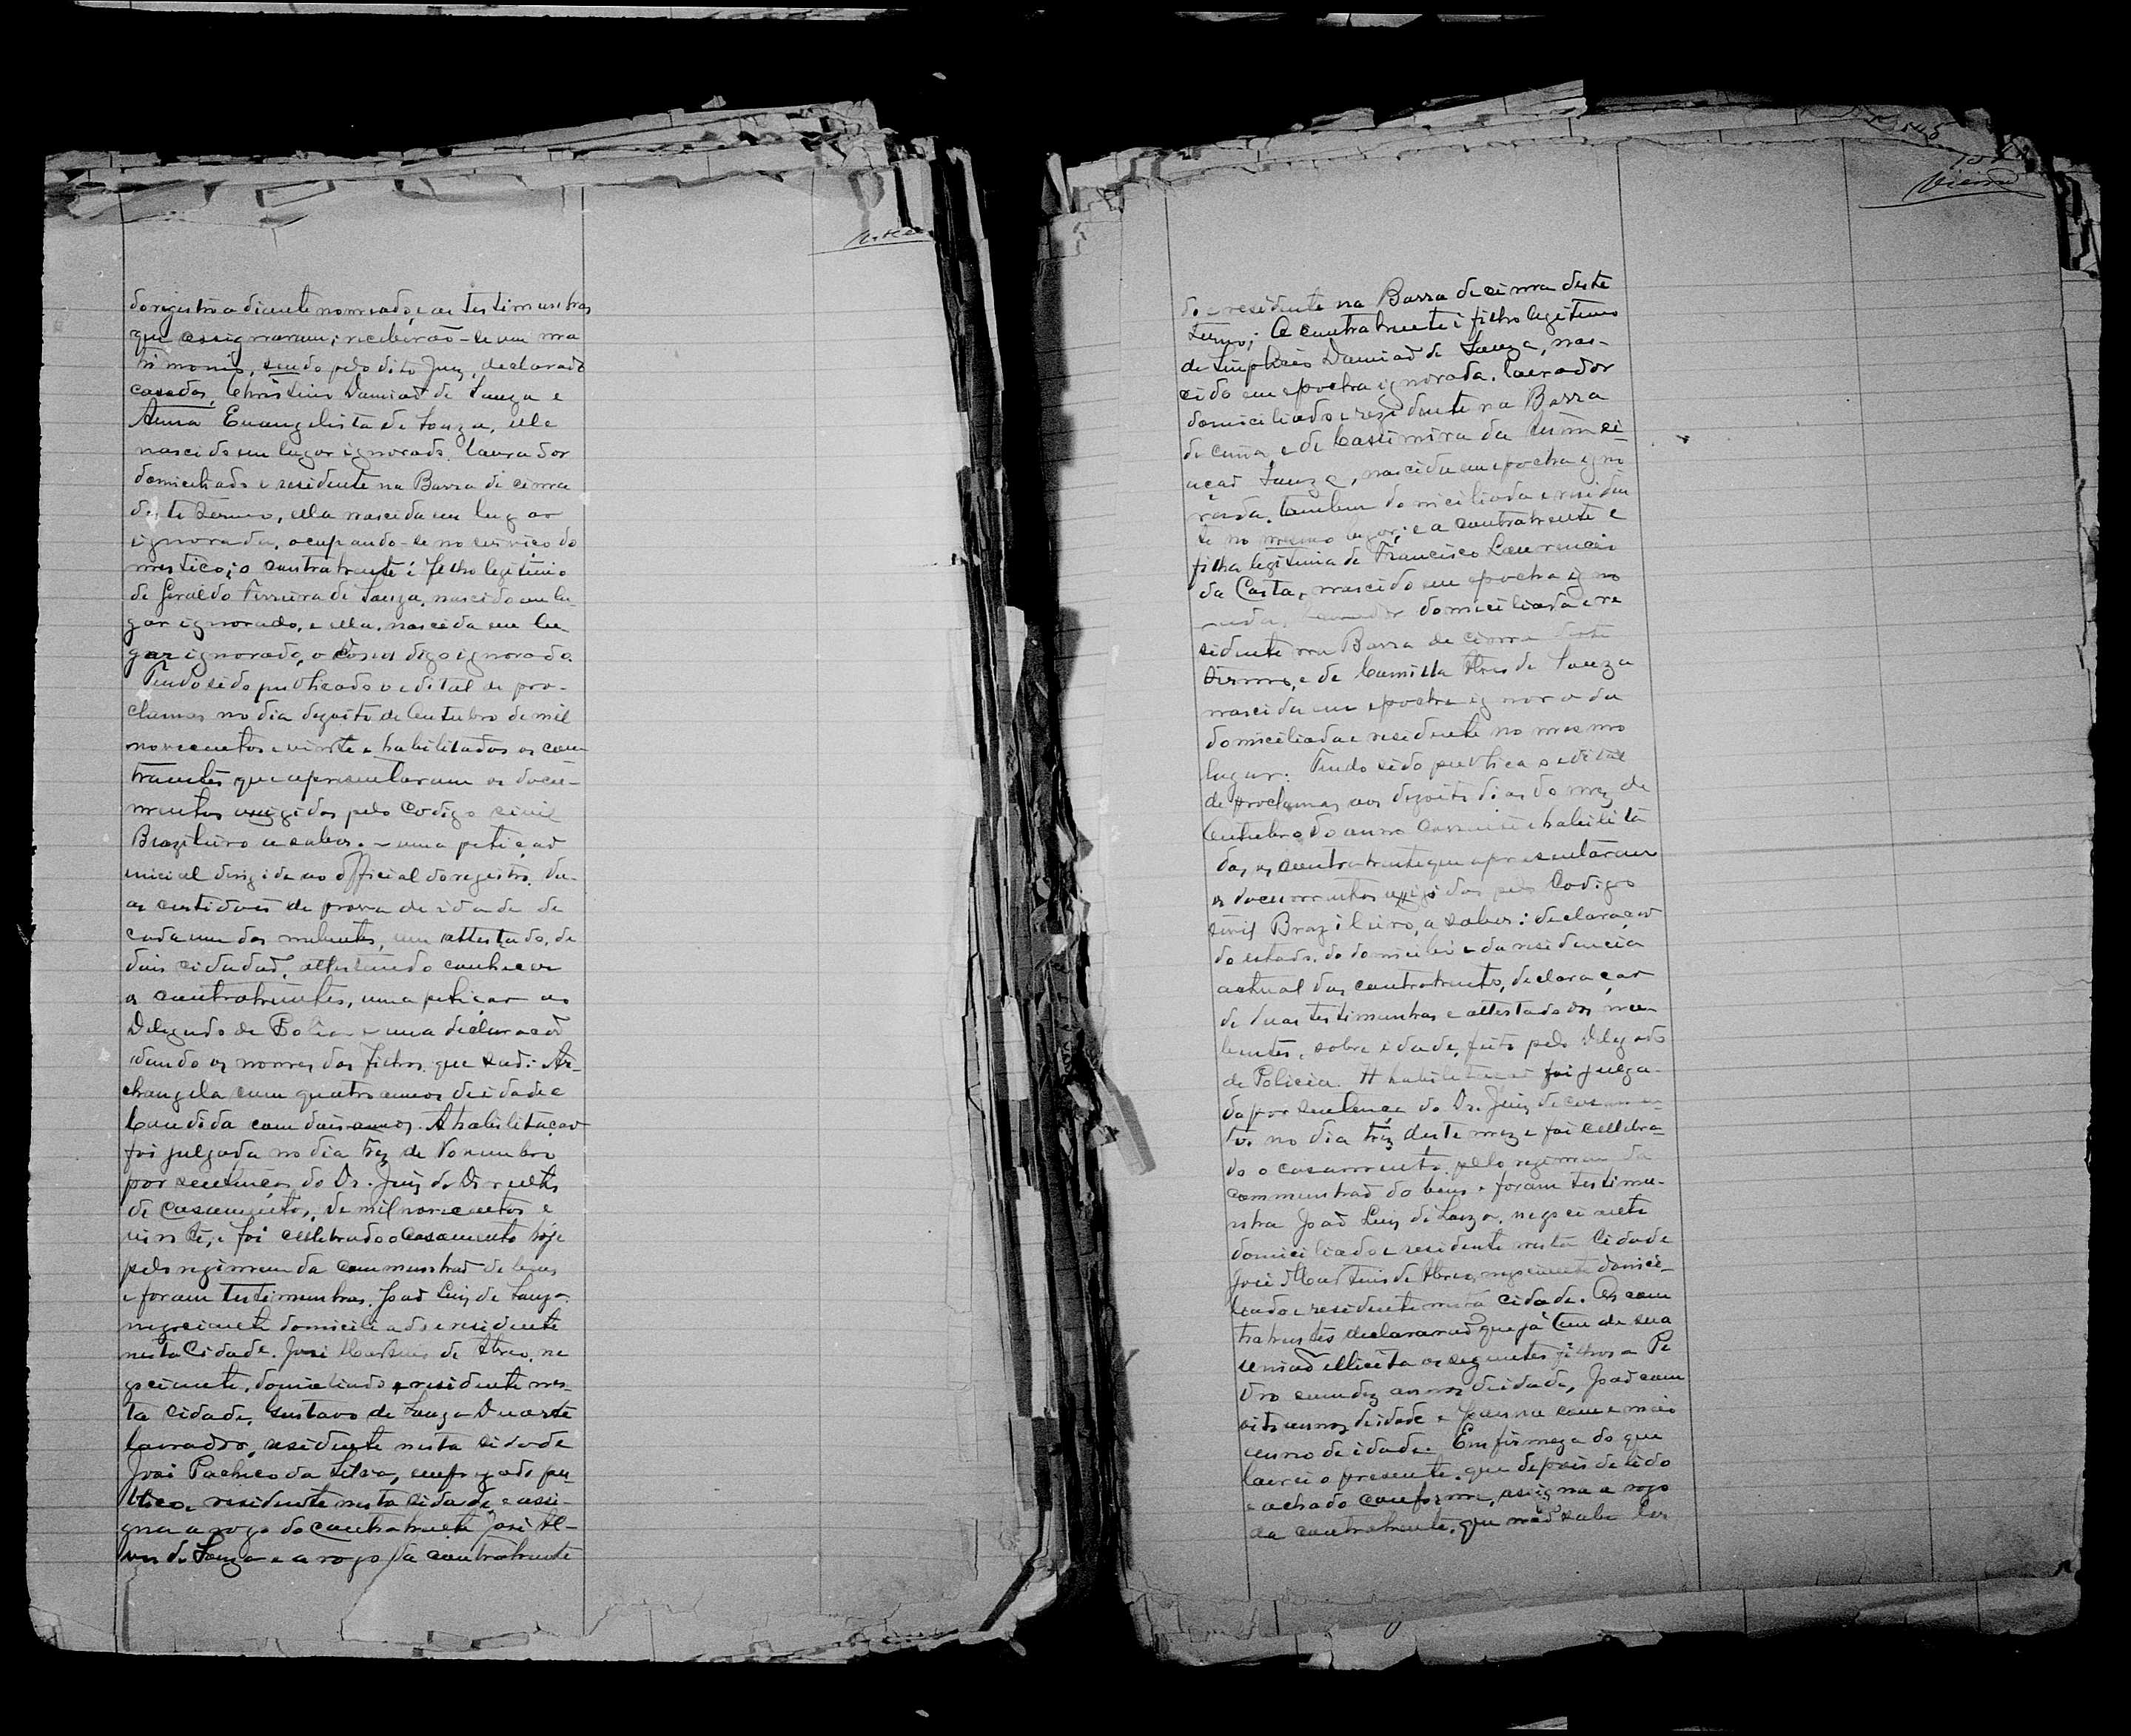 do registro adiante nomeado, e as testimunhas
que assignaram; receberão-se em ma
trimonio, sendo pelo dito Juiz, declarado
casados, Christino Damião de Souza e
Anna Evangelista de Souza, elle
nascido em lugar ignorado. lavrador
domiciliado e residente na Barra de cima
deste Termo, ella nascida em lugar
ignorada, ocupando-se no serviço do
mestico; o contrahente é filho legitimo
de Geraldo Ferreira de Souza, nascido em lu-
gar ignorado, e ella, nascida em lu
gar ignorado, o digo ignorado.
Tendo sido publicado o edital de pro-
clamas no dia dezoito de Outubro de mil
novecentos e vinte e habilitados os con-
trantes que apresentaram os docu-
mentos exigidos pelo Codigo civil
Brazileiro a saber. - uma petição
inicial dirigida ao official do registro. du-
as certidões de prova de idade de
cada um dos nubentes, um attestado, de
dois cidadaõ, attestando conhecer
os contrahentes, uma petiçao ao
Delegado de Policia e uma declaração
dando os nomes dos filhos, que saõ: Ar-
changela com quatro annos de idade e
Candida com dois annos. A habilitaçao
foi julgada no dia trez de Novembro
por sentença do Dr. Juiz de Direito
de casamentos, de mil novecentos e
vinte, e foi cellebrado o casamento hoje
pelo regimem da communhaõ de bens
e foram testimunhas. Joaõ Luiz de Souza
negociante domiciliado e residente
nesta Cidade. José Martins de Abreo, ne
gociante, domiciliado e residente nes-
ta cidade, Gustavo de Souza Duarte
lavrador, residente nesta cidade
José Pacheco da Silva, empregado pu-
blico, residente nesta cidade, e assi-
gna a rogo do contrahente José Al-
ves de Souza e a rogo da contrahente
Vieira
do e residente na Barra de cima deste
Termo; O contrahente é filho legitimo
de Simplicio Damiaõ de Souza, nas-
cido em epocha ignorada, lavrador
domiciliado e residente na Barra
de cima e de Casimira da
Souza, nascida em epocha igno
rada, tambem domiciliada e residen
te no mesmo lugar; e a contrahente e
filha legitima de Francisco Lourenço
da Costa, nascido em epocha igno
rada, lavrador domiciliado e re
sidente na Barra de cima deste
Termo, e de Camilla Alves de Souza
nascida em epocha ignorada
domiciliada e residente no mesmo
lugar. Tendo sido publica o edital
de proclamas aos dezoito dias do mez de
Outubro do anno e habilita
dos, os contrahente que apresentaram
os documentos exigidos pelo Codigo
civil Brazileiro, a saber: declaraçao
do estado, do domicilio e da residencia
actual dos contrahentes, declaraçao
de duas testimunhas e attestado dos nu-
bentes, sobre idade, feito pelo Delegado
de Policia. A habilitaçaõ foi julga-
da por sentença do Dr. Juiz de casamen-
tos no dia trez deste mez e foi cellebra-
do o casamento pelo regimem da
communhaõ de bens e foram testimu-
nha Joaõ Luiz de Souza, negociante
domiciliado e residente nesta Cidade
José Martins de Abreo, negociante domici-
liado e residente nesta cidade. Os con
trahentes declararaõ que já tem de sua
uniaõ ellicita os seguintes filhos - Pe
dro com dez annos de idade, Joaõ com
oito annos de idade e Joanna com e meio
anno de idade. Em firmeza do que
lavrei o presente, que depois de lido
e achado conforme, assigna a rogo
da contrahente, que naõ sabe ler